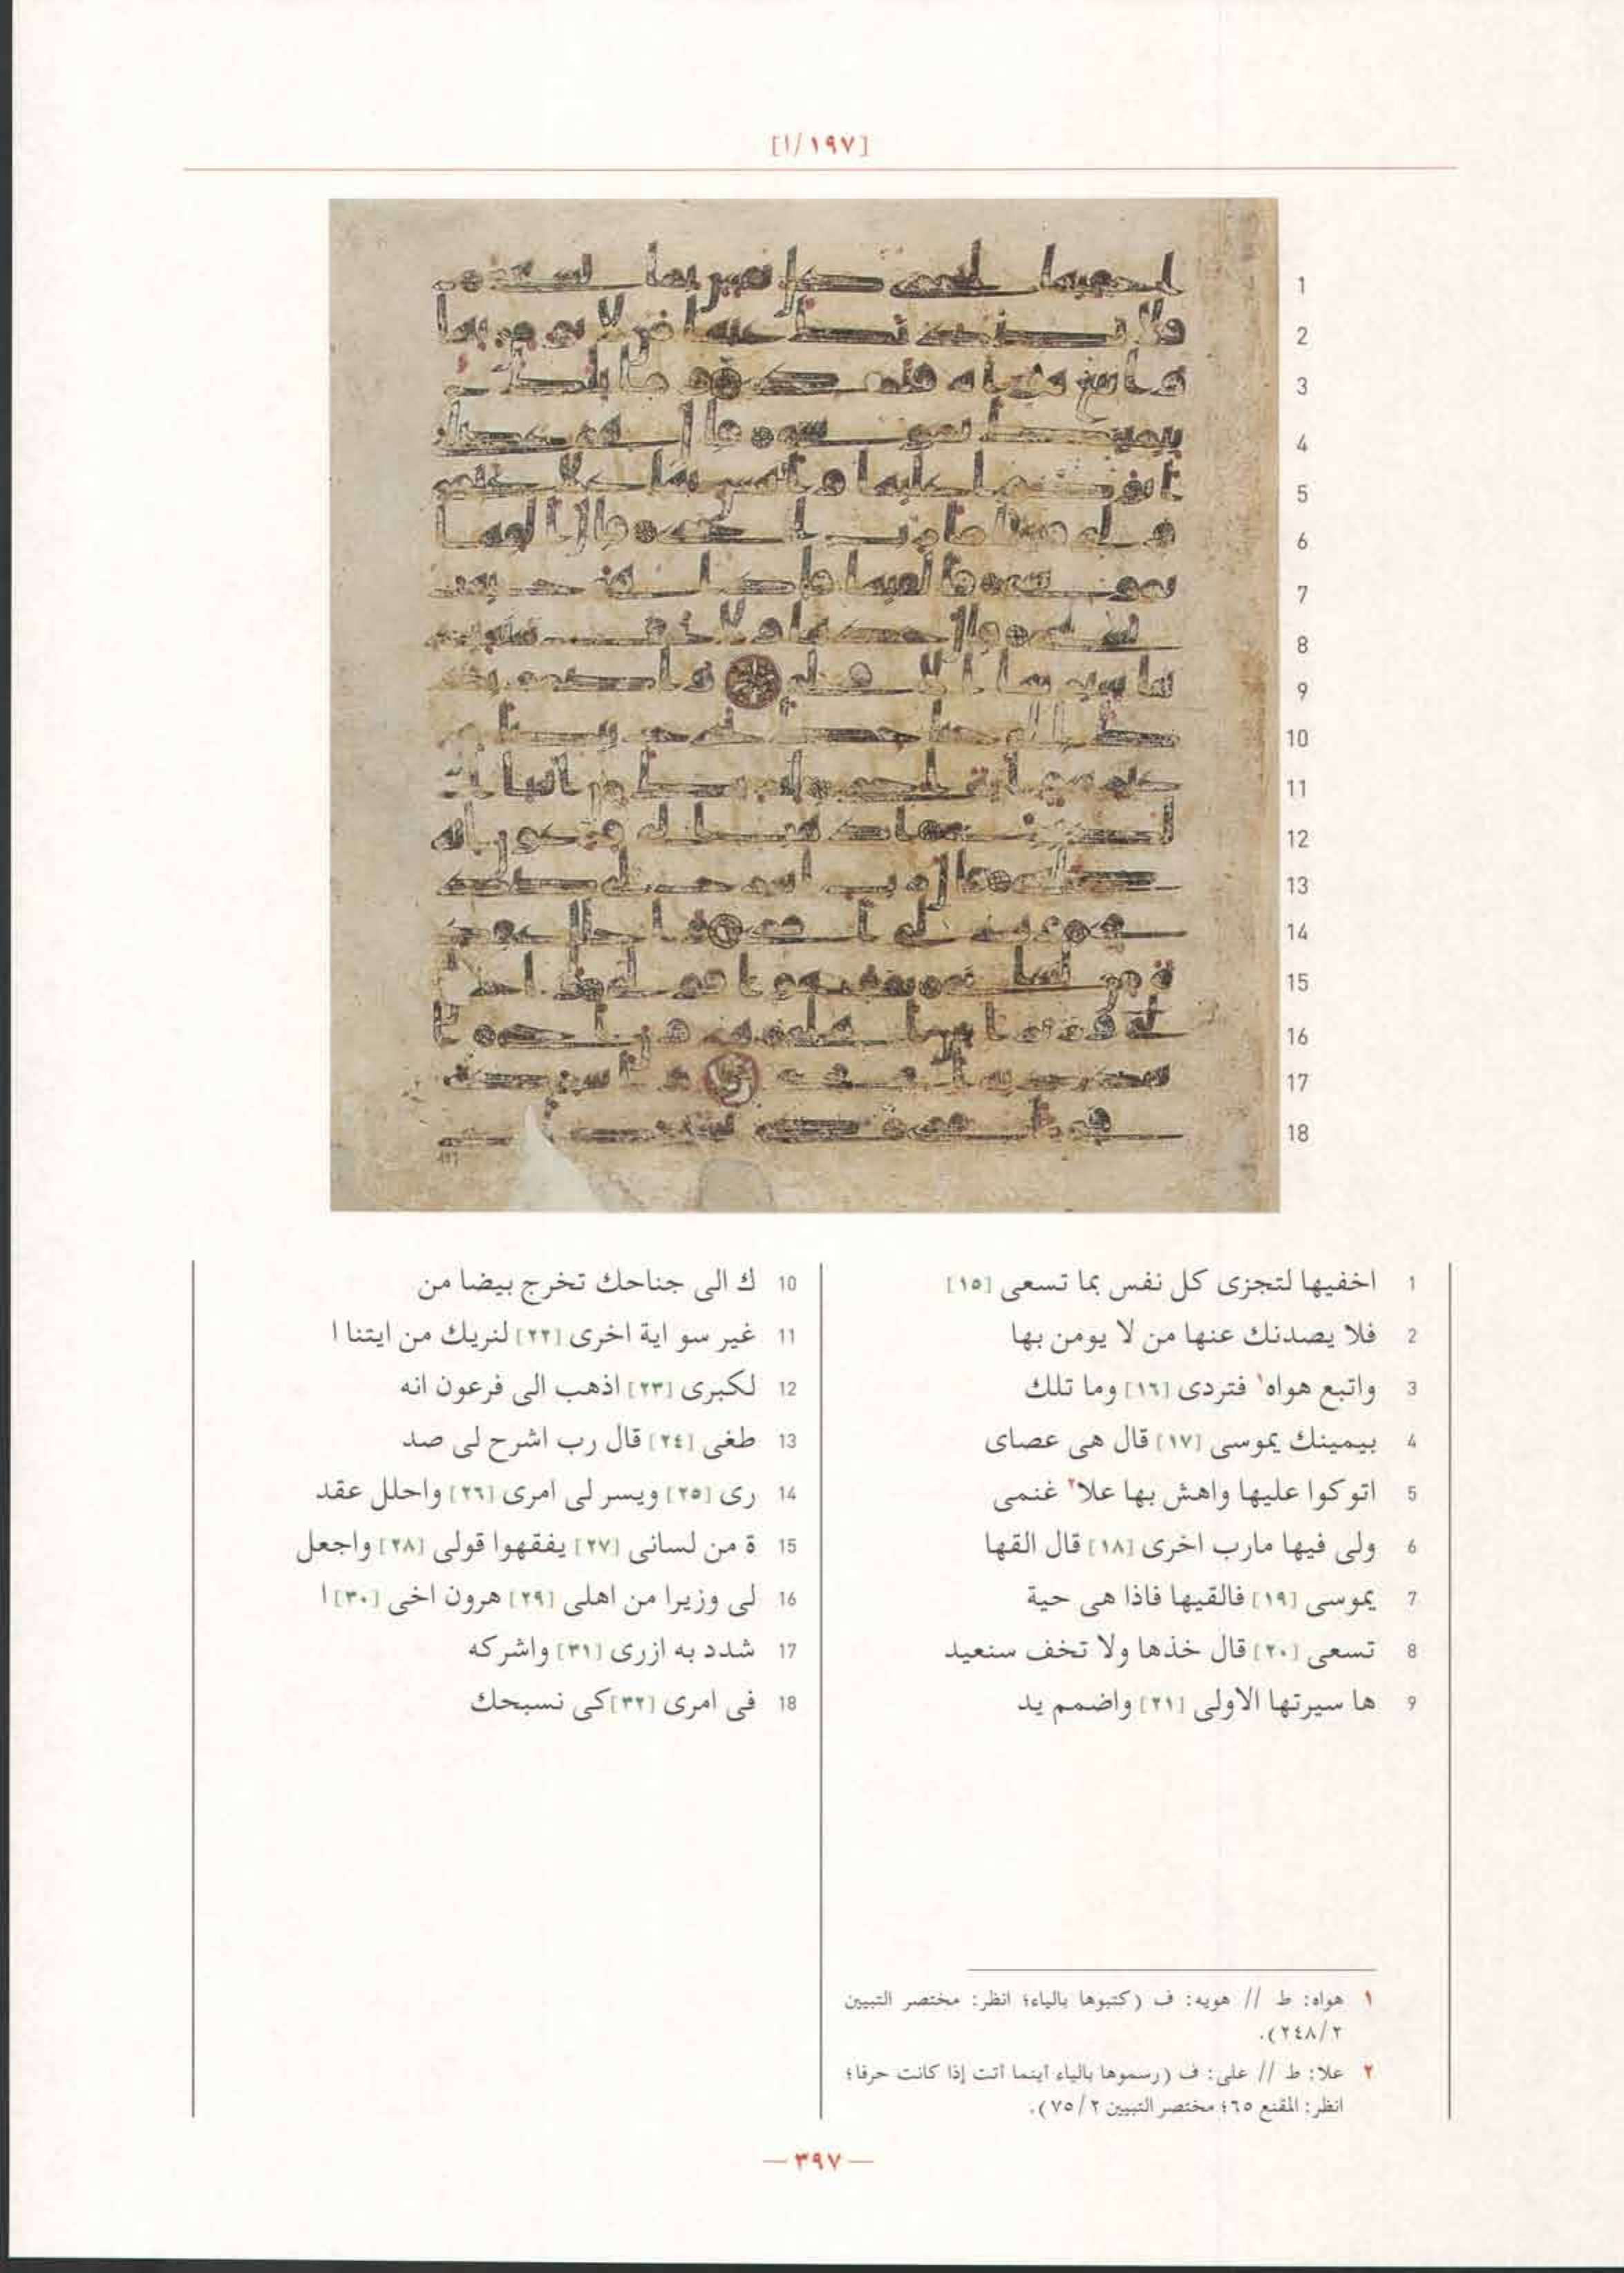 [١٩٧/ا]
1 اخفيها لتجزى كل نفس بما تسعى [١٥]
2 فلا يصدنك عنها من لا يومن بها
3 واتبع هواه١ فتردى [١٦] وما تلك
4 بيمينك يموسى [١٧] قال هى عصاى
5 اتوكوا عليها واهش بها علا٢ غنمى
6 ولى فيها مارب اخرى [١٨] قال القها
7 يموسى [١٩] فالقيها فاذا هى حية
8 تسعى [٢٠] قال خذها ولا تخف سنعيد
9 ها سيرتها الاولى [٢١] واضمم يد
10 ك الى جناحك تخرج بيضا من
11 غير سو اية اخرى [٢٢] لنريك من ايتنا ا
12 لكبرى [٢٣] اذهب الى فرعون انه
13 طغى [٢٤] قال رب اشرح لى صد
14 رى [٢٥] ويسر لى امرى [٢٦] واحلل عقد
15 ة من لسانى [٢٧] يفقهوا قولى [٢٨] واجعل
16 لى وزيرا من اهلى [٢٩] هرون اخى [٣٠] ا
17 شدد به ازرى [٣١] واشركه
18 فى امرى [٣٢] كى نسبحك
١ هواه: ط // هويه: ف (كتبوها بالياء؛ انظر: مختصر التبيين
٢٤٨/٢).
٢ علا: ط // على: ف (رسموها بالياء أينما أتت إذا كانت حرفا؛
انظر: المقنع ٦٥؛ مختصر التبيين ٧٥/٢).
— ٣٩٧ —